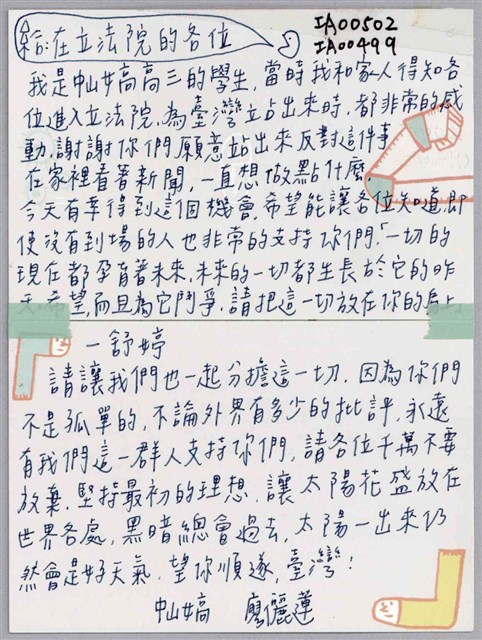 給在立法院的各位
IA00502
IA00499
我是中山女高高三的學生,當時我和家人得知各
位進入立法院,為臺灣站出來時,都非常的感
動,謝謝你們願意站出來反對這件事
在家裡看著新聞,一直想做點什麼,
今天有幸得到這個機會,希望能讓各位知道,即
使沒有到場的人也非常的支持你們,「一切的
現在都孕育著未來,未來的一切都生長於它的昨
天,希望,而且為它鬥爭,請把這一切放在你的肩上
—舒婷
請讓我們也一起分擔這一切,因為你們
不是孤單的,不論外界有多少的批評,永遠
有我們這一群人支持你們,請各位千萬不要
放棄,堅持最初的理想,讓太陽花盛放在
世界各處,黑暗總會過去,太陽一出來仍
然會是好天氣,望你順遂,臺灣!
中山女高 廖儷蓮